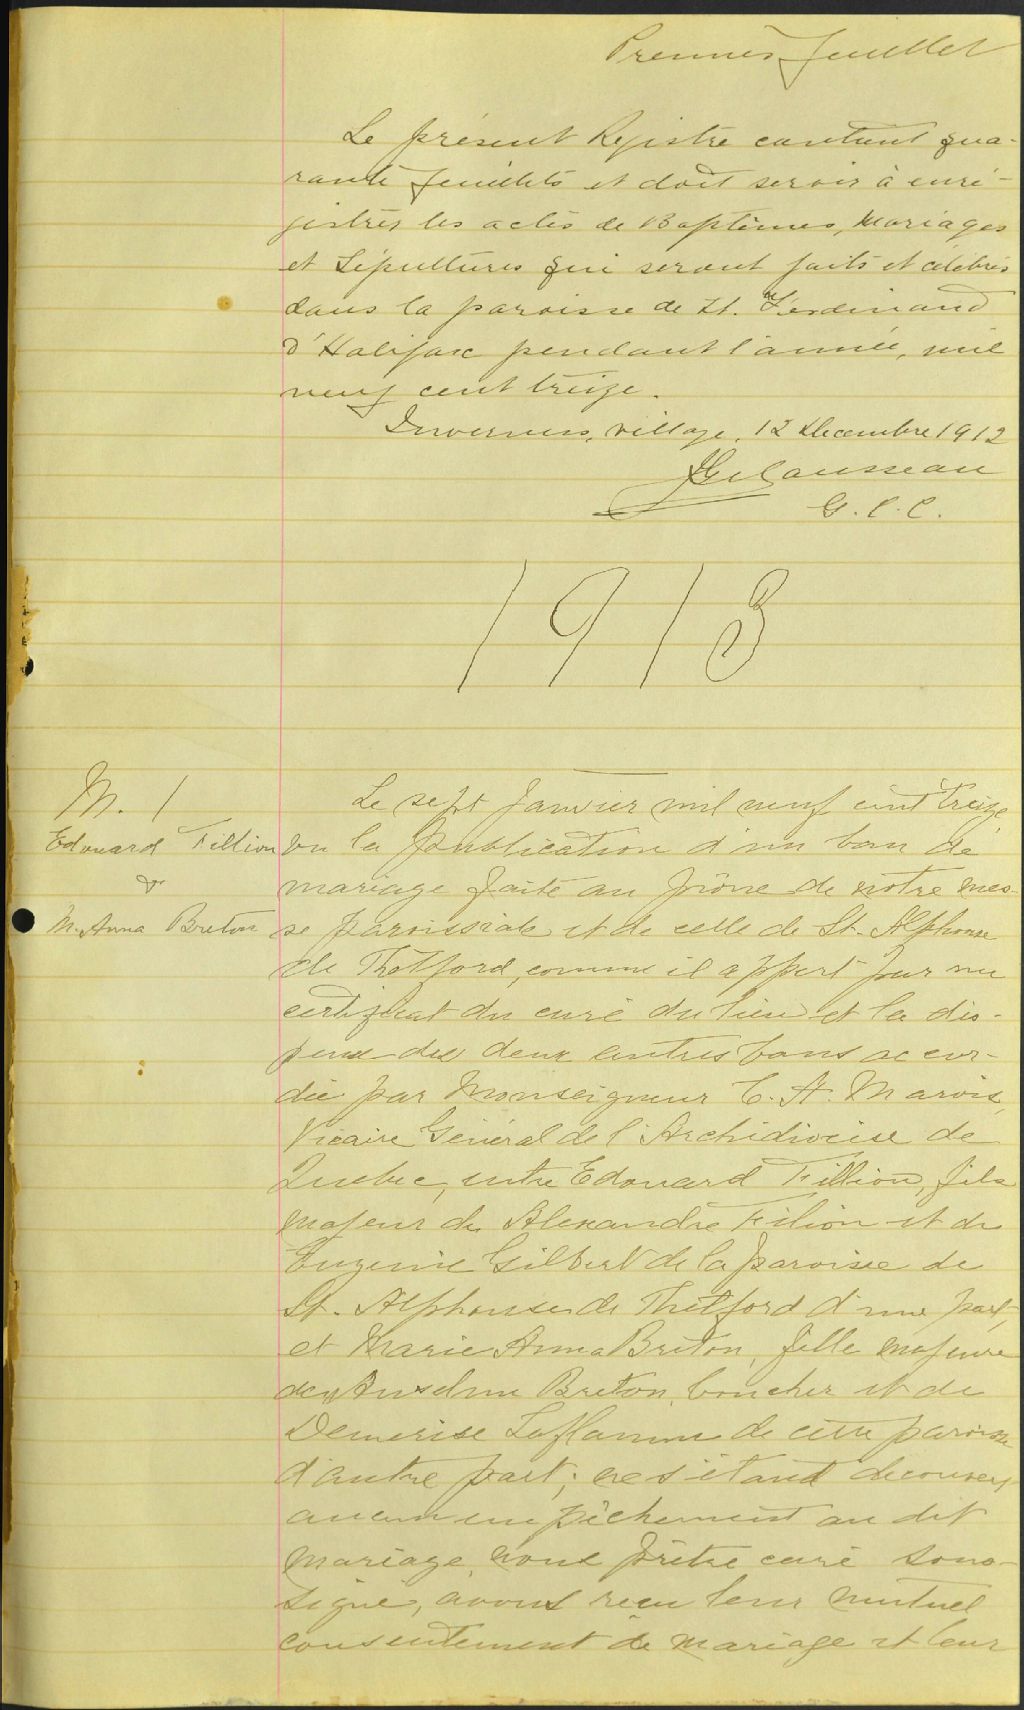 Premier Feuillet
Le présent Registre contient qua-
rante feuillets et doit servir à enré-
gistrer les actes de Baptêmes, Mariages
et Sépultures qui seront faits et célébrés
dans la paroisse de St. Ferdinand
d'Halifax pendant l'année, mil
neuf cent treize.
Inverness, village, 12 Décembre 1912
Rousseau
G. C. C.
1913
M. 1
Edouard Fillion
&
M. Anna Breton
Le sept Janvier mil neuf cent treize
vu la publication d'un ban de
mariage faite au prône de notre mes-
se paroissiale et de celle de St. Alphonse
de Thetford, comme il appert par un
certificat du curé du lieu et la dis-
pense des deux autres bans accor-
dée par Monseigneur C. A. Marois,
Vicaire Général de l'Archidiocèse de
Québec, entre Edouard Fillion, fils
majeur de Alexandre Filion et de
Eugenie Gilbert de la paroisse de
St. Alphonse de Thetford d'une part,
et Marie Anna Breton, fille majeure
de Anselme Breton, boucher et de
Demerise Laflamme de cette paroisse
d'autre part; ne s'étant decouvert
aucun empêchement au dit
mariage, nous prêtre curé sous-
signé, avons recu leur mutuel
consentement de mariage et leur